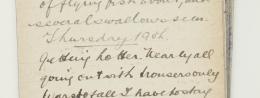 of flying fish about, and
several swallows seen.
Thursday 19th.
Getting hotter. Nearly all
going out with trousers only
I have to stay